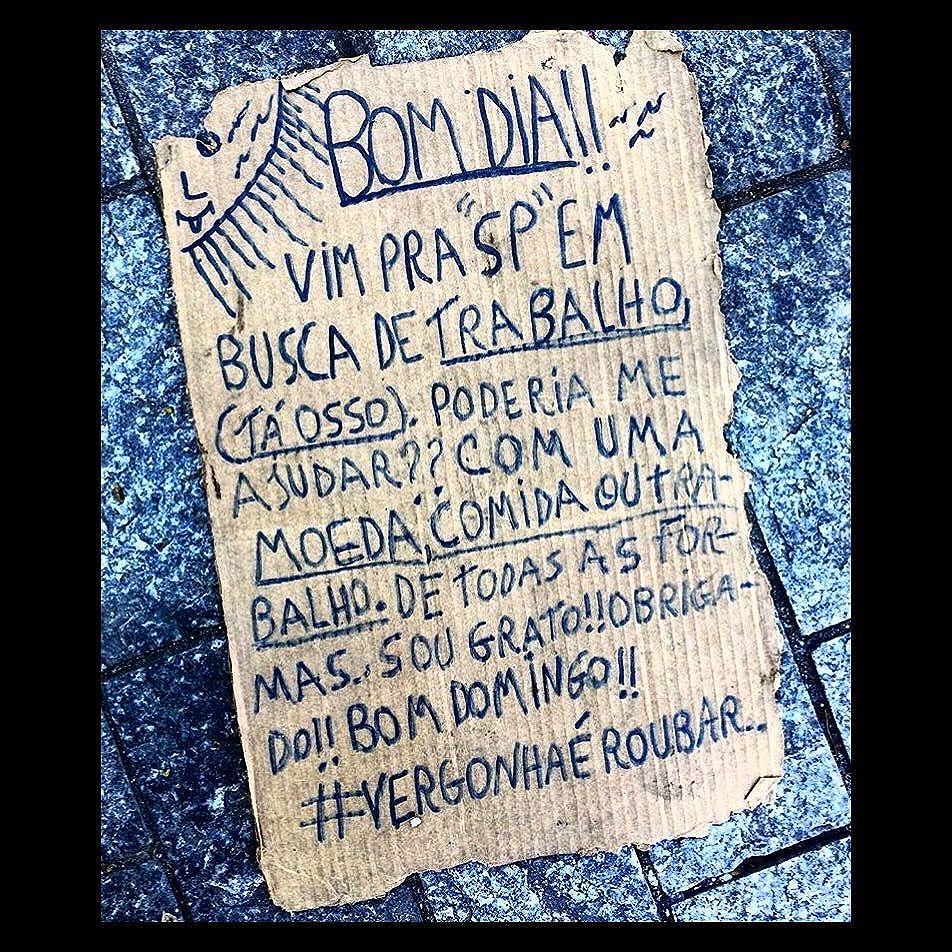 BOM DIA!!
VIM PRA "SP" EM
BUSCA DE TRABALHO,
(TÁ OSSO). PODERIA ME
AJUDAR?? COM UMA
MOEDA, COMIDA OU TRA-
BALHO. DE TODAS AS FOR-
MAS.. SOU GRATO!! OBRIGA-
DO!! BOM DOMINGO!!
#VERGONHAÉROUBAR..